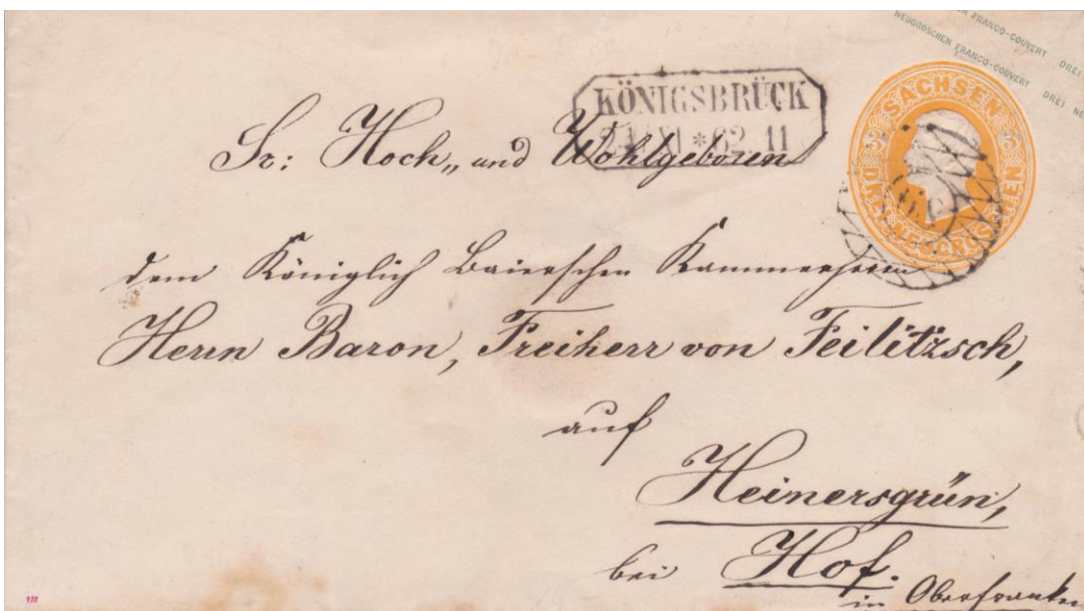 NEUGROSCHEN FRANCO-COUVERT DREI
NEUGROSCHEN FRANCO-COUVERT DREI
KÖNIGSBRÜCK
XI * 62. 11
SACHSEN
3 3
DREI NEUGROSCHEN
Sr: Hoch„ und Wohlgeboren
dem Königlich Baierschen Kammerherrn
Herrn Baron, Freiherr von Feilitzsch,
auf
Heinersgrün,
bei Hof.
in Oberfranken